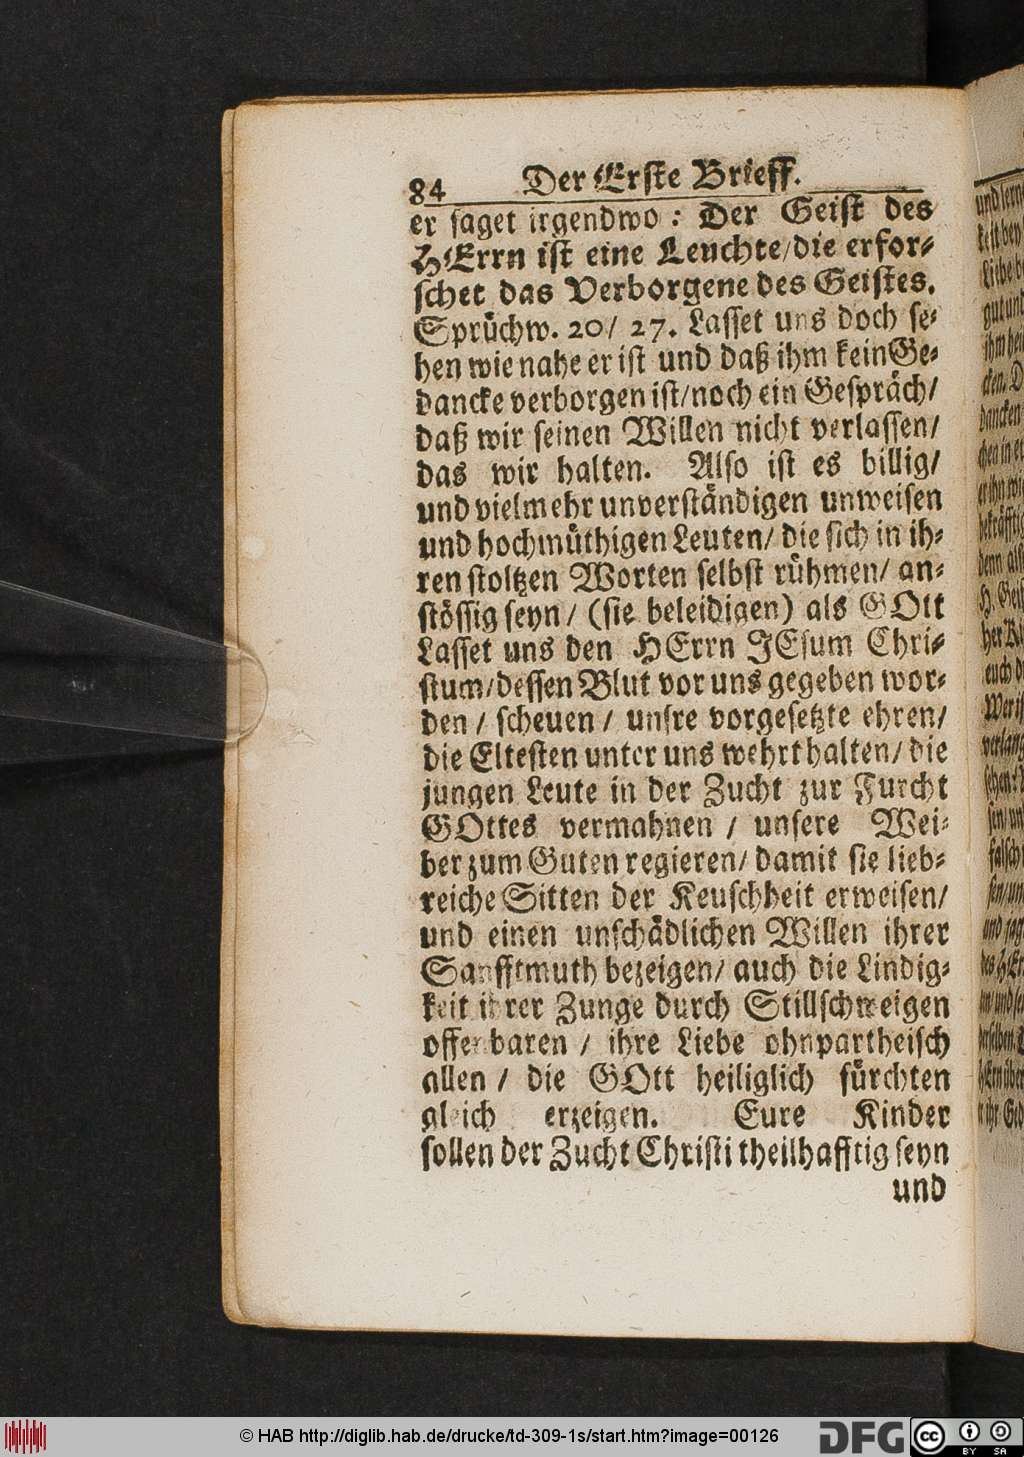 84 Der Erste Brieff.
er saget irgendwo: Der Geist des
HErrn ist eine Leuchte/die erfor-
schet das Verborgene des Geistes.
Sprüchw. 20/ 27. Lasset uns doch se-
hen wie nahe er ist und daß ihm kein Ge-
dancke verborgen ist/noch ein Gespräch/
daß wir seinen Willen nicht verlassen/
das wir halten. Also ist es billig/
und vielmehr unverständigen unweisen
und hochmüthigen Leuten/ die sich in ih-
ren stoltzen Worten selbst rühmen/ an-
stössig seyn/ (sie beleidigen) als GOtt
Lasset uns den HErrn JEsum Chri-
stum/dessen Blut vor uns gegeben wor-
den / scheuen / unsre vorgesetzte ehren/
die Eltesten unter uns wehrt halten/ die
jungen Leute in der Zucht zur Furcht
GOttes vermahnen / unsere Wei-
ber zum Guten regieren/ damit sie lieb-
reiche Sitten der Keuschheit erweisen/
und einen unschädlichen Willen ihrer
Sanfftmuth bezeigen/ auch die Lindig-
keit ihrer Zunge durch Stillschweigen
offenbaren / ihre Liebe ohnpartheisch
allen / die GOtt heiliglich fürchten
gleich erzeigen. Eure Kinder
sollen der Zucht Christi theilhafftig seyn
und
© HAB http://diglib.hab.de/drucke/td-309-1s/start.htm?image=00126
DFG
cc BY SA